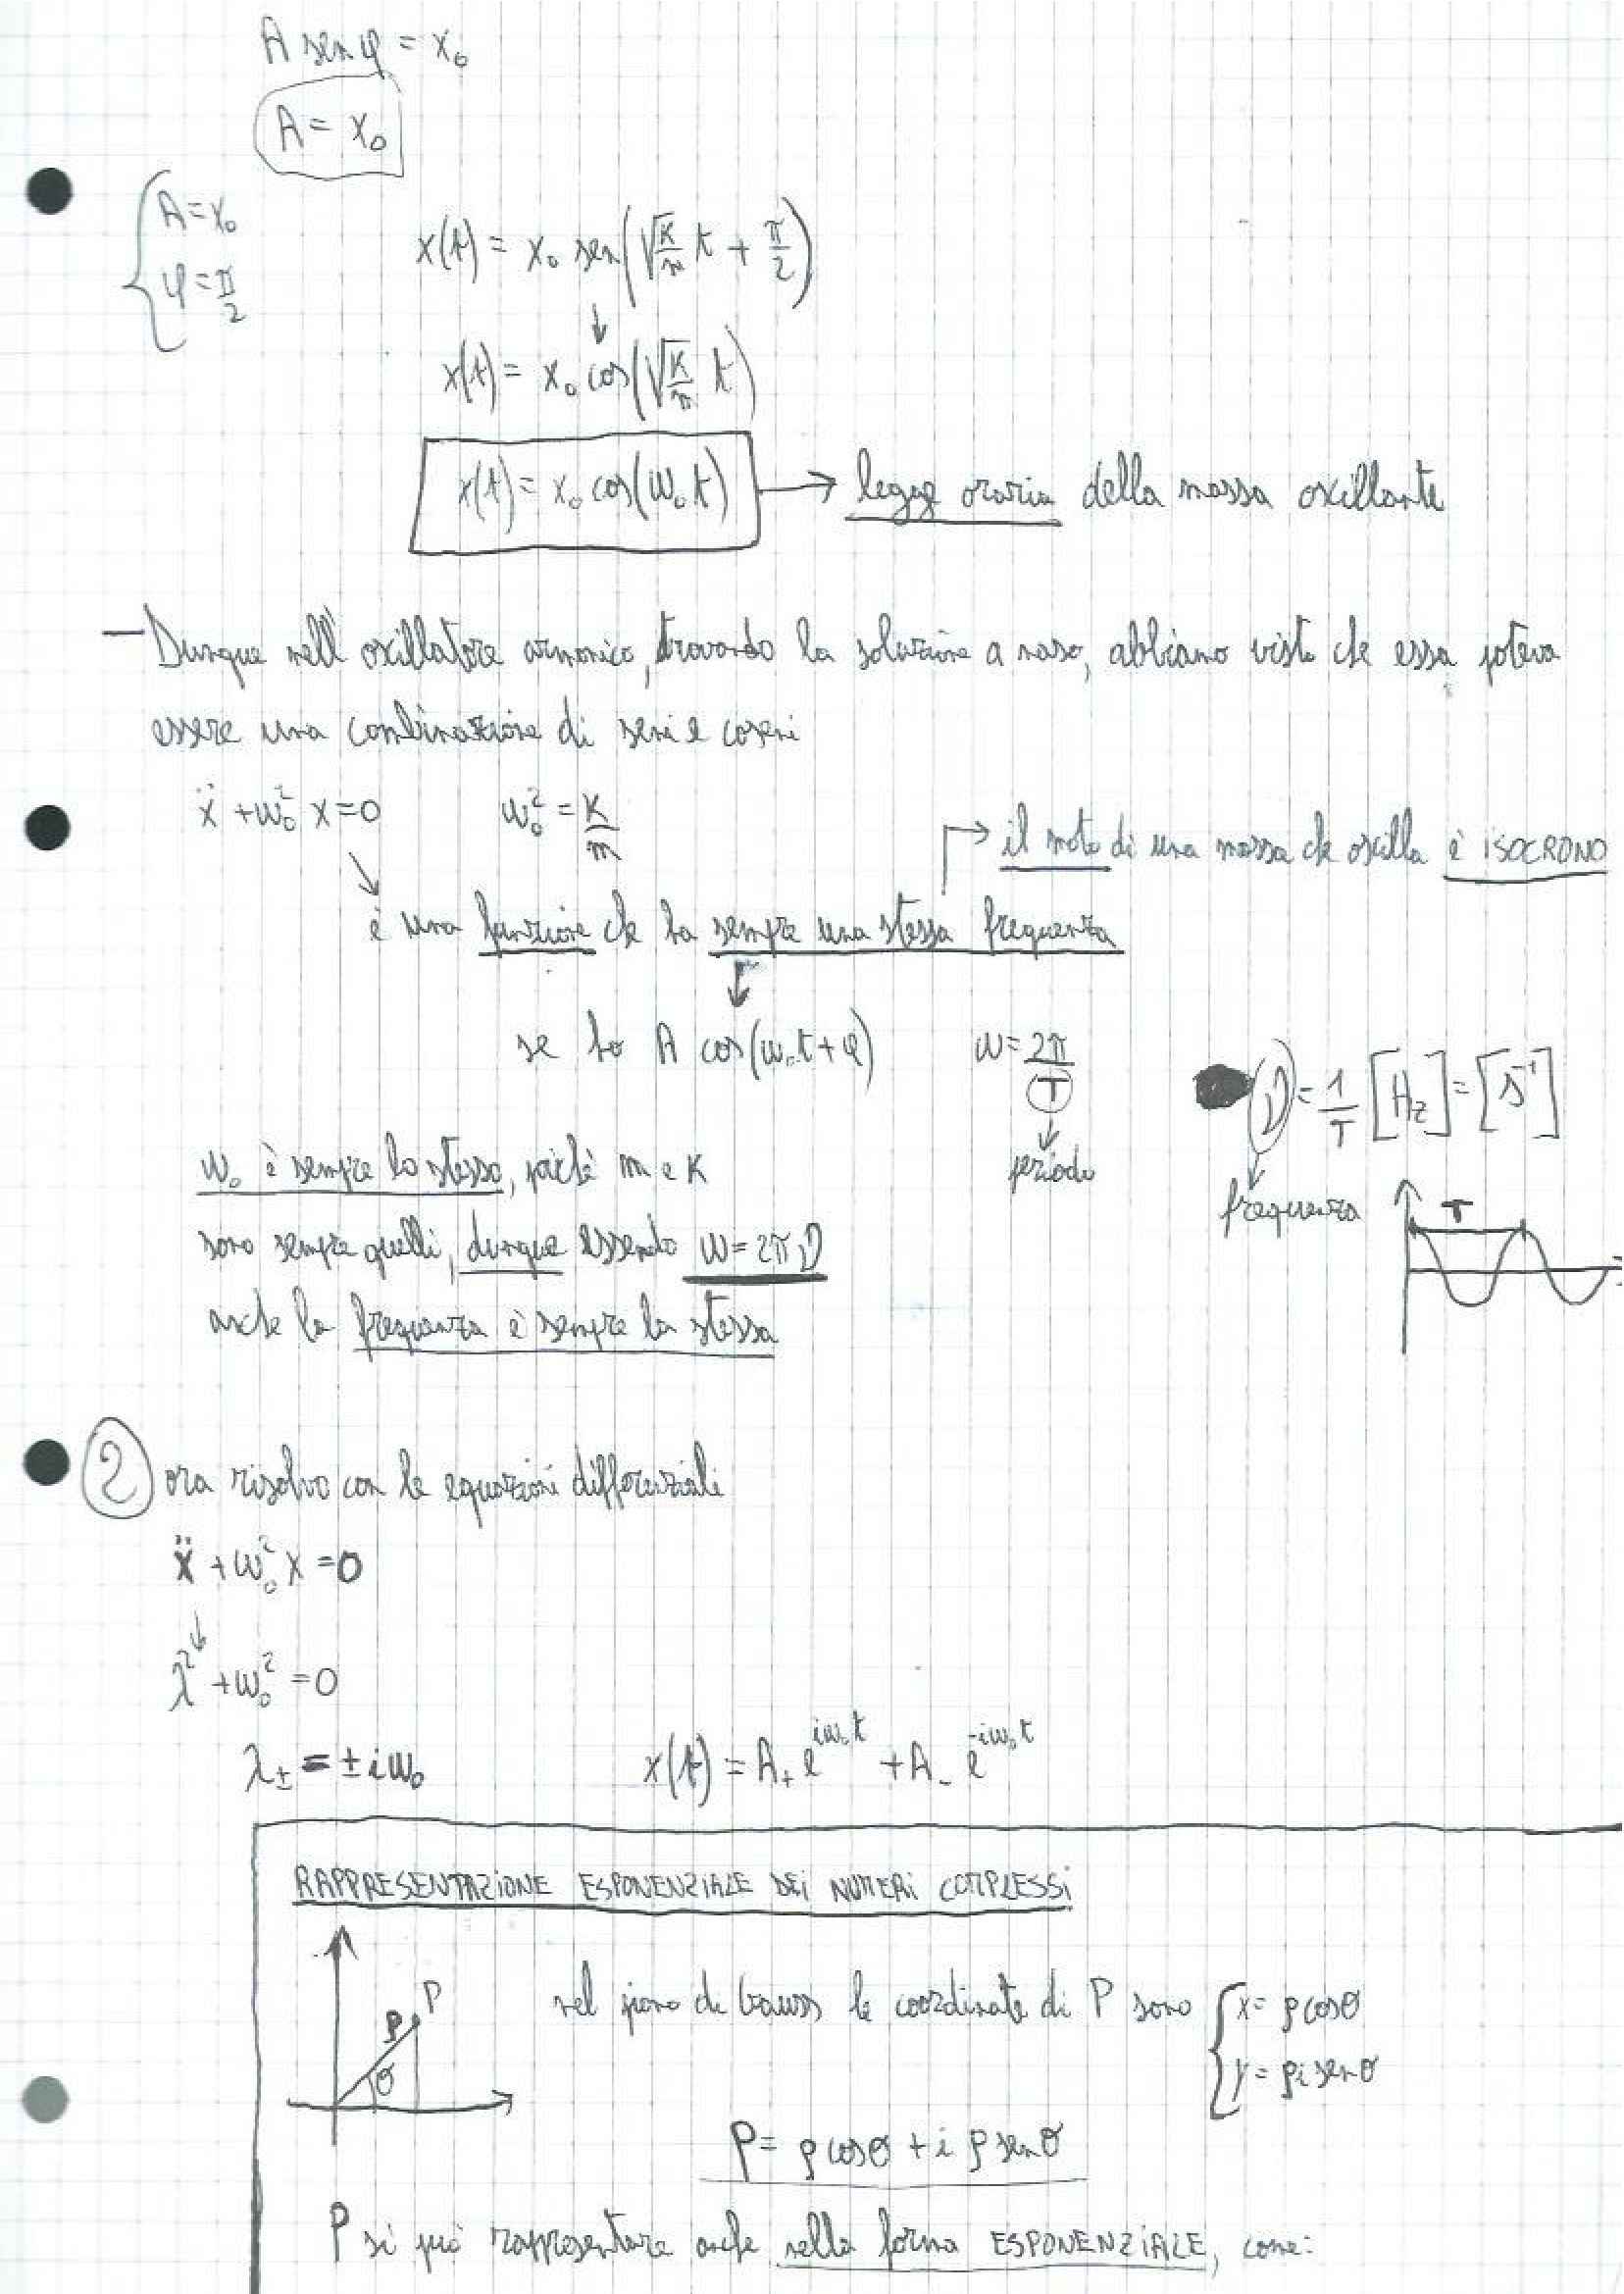 A sen φ = x₀
A = x₀
{ A = x₀
φ = π/2
x(t) = x₀ sen(√(K/m) t + π/2)
↓
x(t) = x₀ cos(√(K/m) t)
x(t) = x₀ cos(ω₀t) → legge oraria della massa oscillante
— Dunque nell'oscillatore armonico, trovando la soluzione a naso, abbiamo visto che essa poteva
essere una combinazione di seni e coseni
ẍ + ω₀² x = 0 ω₀² = K/m
→ il moto di una massa che oscilla è ISOCRONO
è una funzione che ha sempre una stessa frequenza
↓
se ho A cos(ω₀t + φ) ω = 2π/T
ν = 1/T [Hz] = [s⁻¹]
periodo
frequenza T
ω₀ è sempre lo stesso, poiché m e K
sono sempre quelli, dunque essendo ω = 2πν
anche la frequenza è sempre la stessa
② ora risolvo con le equazioni differenziali
ẍ + ω₀² x = 0
↓
λ² + ω₀² = 0
λ± = ± iω₀ x(t) = A₊ e^{iω₀t} + A₋ e^{-iω₀t}
RAPPRESENTAZIONE ESPONENZIALE DEI NUMERI COMPLESSI
P
ρ
θ
nel piano di Gauss le coordinate di P sono { x = ρ cosθ
y = ρ i senθ
P = ρ cosθ + i ρ senθ
P si può rappresentare anche nella forma ESPONENZIALE, come: